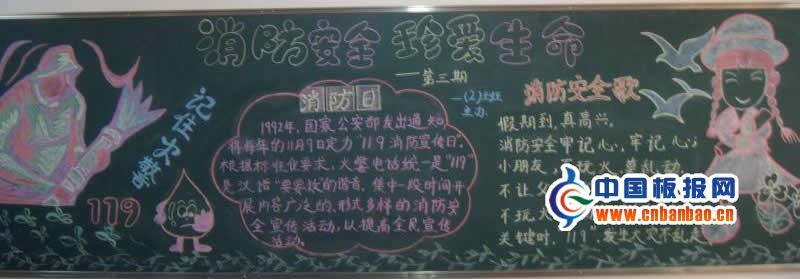 消防安全 珍爱生命
——第三期
(2)班
主办
记住火警
119
消防日
1992年，国家公安部发出通知，
将每年的11月9日定为"119消防宣传日。
根据标准化要求，火警电话统一是"119"
是汉语"要要救的谐音，集中一段时间开
展内容广泛的、形式多样的消防安
全宣传活动，以提高全民宣传
活动。
消防安全歌
假期到，真高兴，
消防安全牢记心，牢记心；
小朋友，
莫乱动
不让父
不玩火
关键时，119，发生火灾不乱
中国板报网
www.cnbanbao.cn